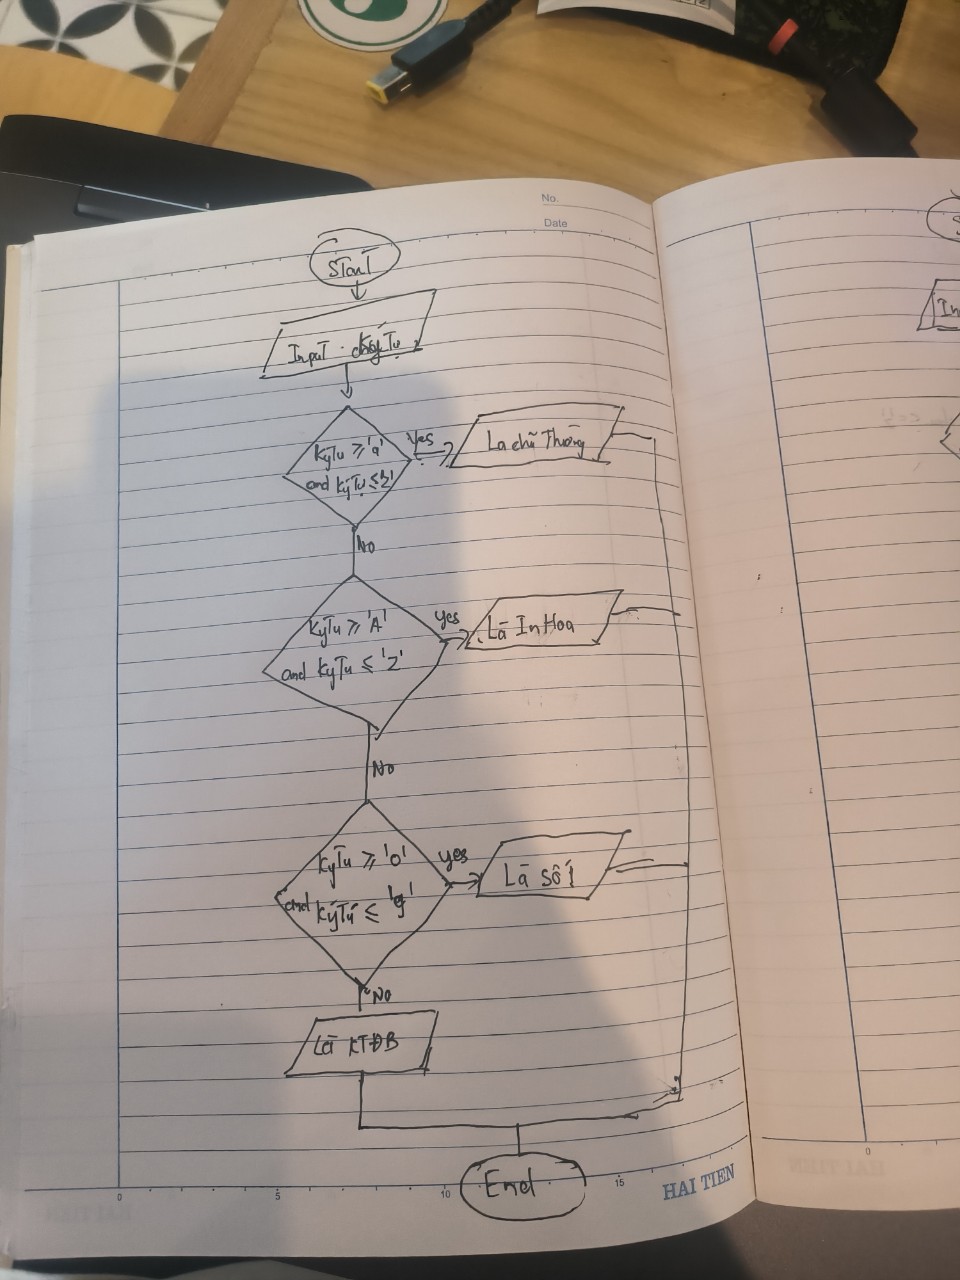 No.
Date
Start
Input . KýTự
KýTự ≥ 'a'
and KýTự ≤ 'z'
Yes
Là chữ Thường
No
KýTự ≥ 'A'
and KýTự ≤ 'Z'
yes
Là InHoa
No
KýTự ≥ '0'
and KýTự ≤ '9'
yes
Là số
No
Là KTĐB
End
0 5 10 15
HAI TIEN
In
0